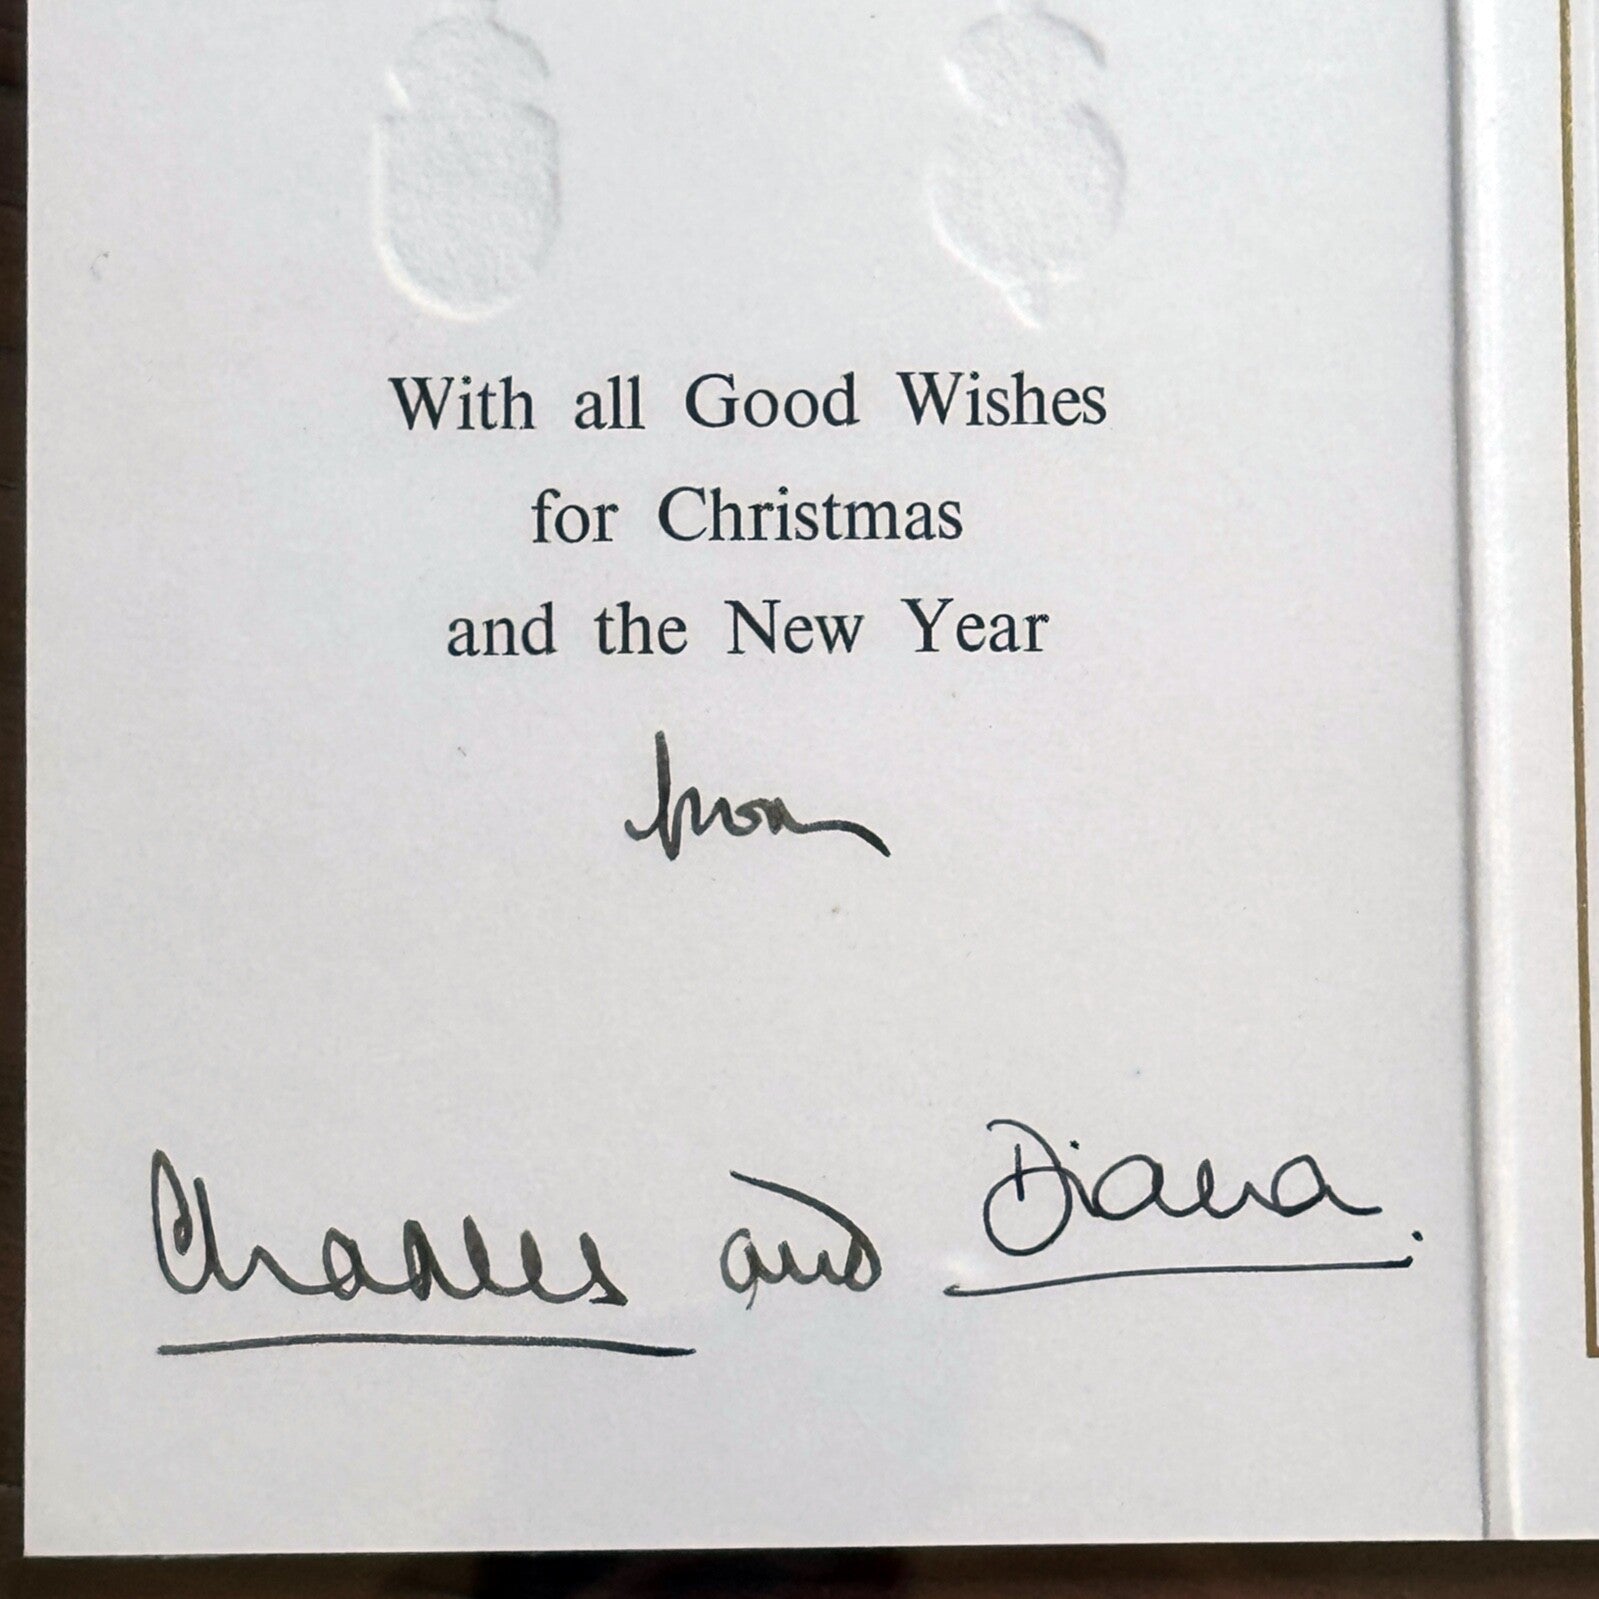 With all Good Wishes
for Christmas
and the New Year
from
Charles and Diana.